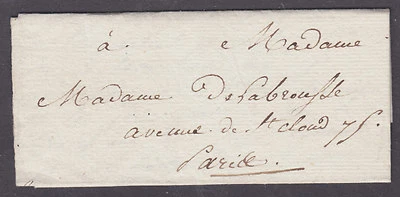 à Madame
Madame De Labrousse
avenue de St cloud 75.
Paris